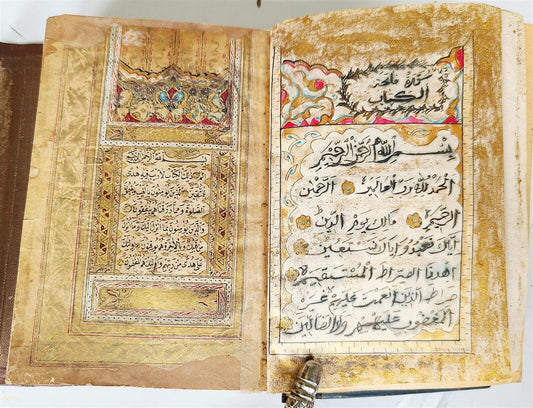 سورة فاتحة
الكتاب
بسم الله الرحمن الرحيم
الحمد لله رب العالمين الرحمن
الرحيم مالك يوم الدين
اياك نعبد واياك نستعين
اهدنا الصراط المستقيم
صراط الذين انعمت عليهم غير
المغضوب عليهم ولا الضالين
بسم الله الرحمن الرحيم
الم ذلك الكتاب لا ريب فيه هدى
للمتقين الذين يؤمنون بالغيب ويقيمون
الصلوة ومما رزقناهم ينفقون
والذين يؤمنون بما انزل اليك
وما انزل من قبلك وبالاخرة
هم يوقنون اولئك على
هدى من ربهم واولئك هم المفلحون